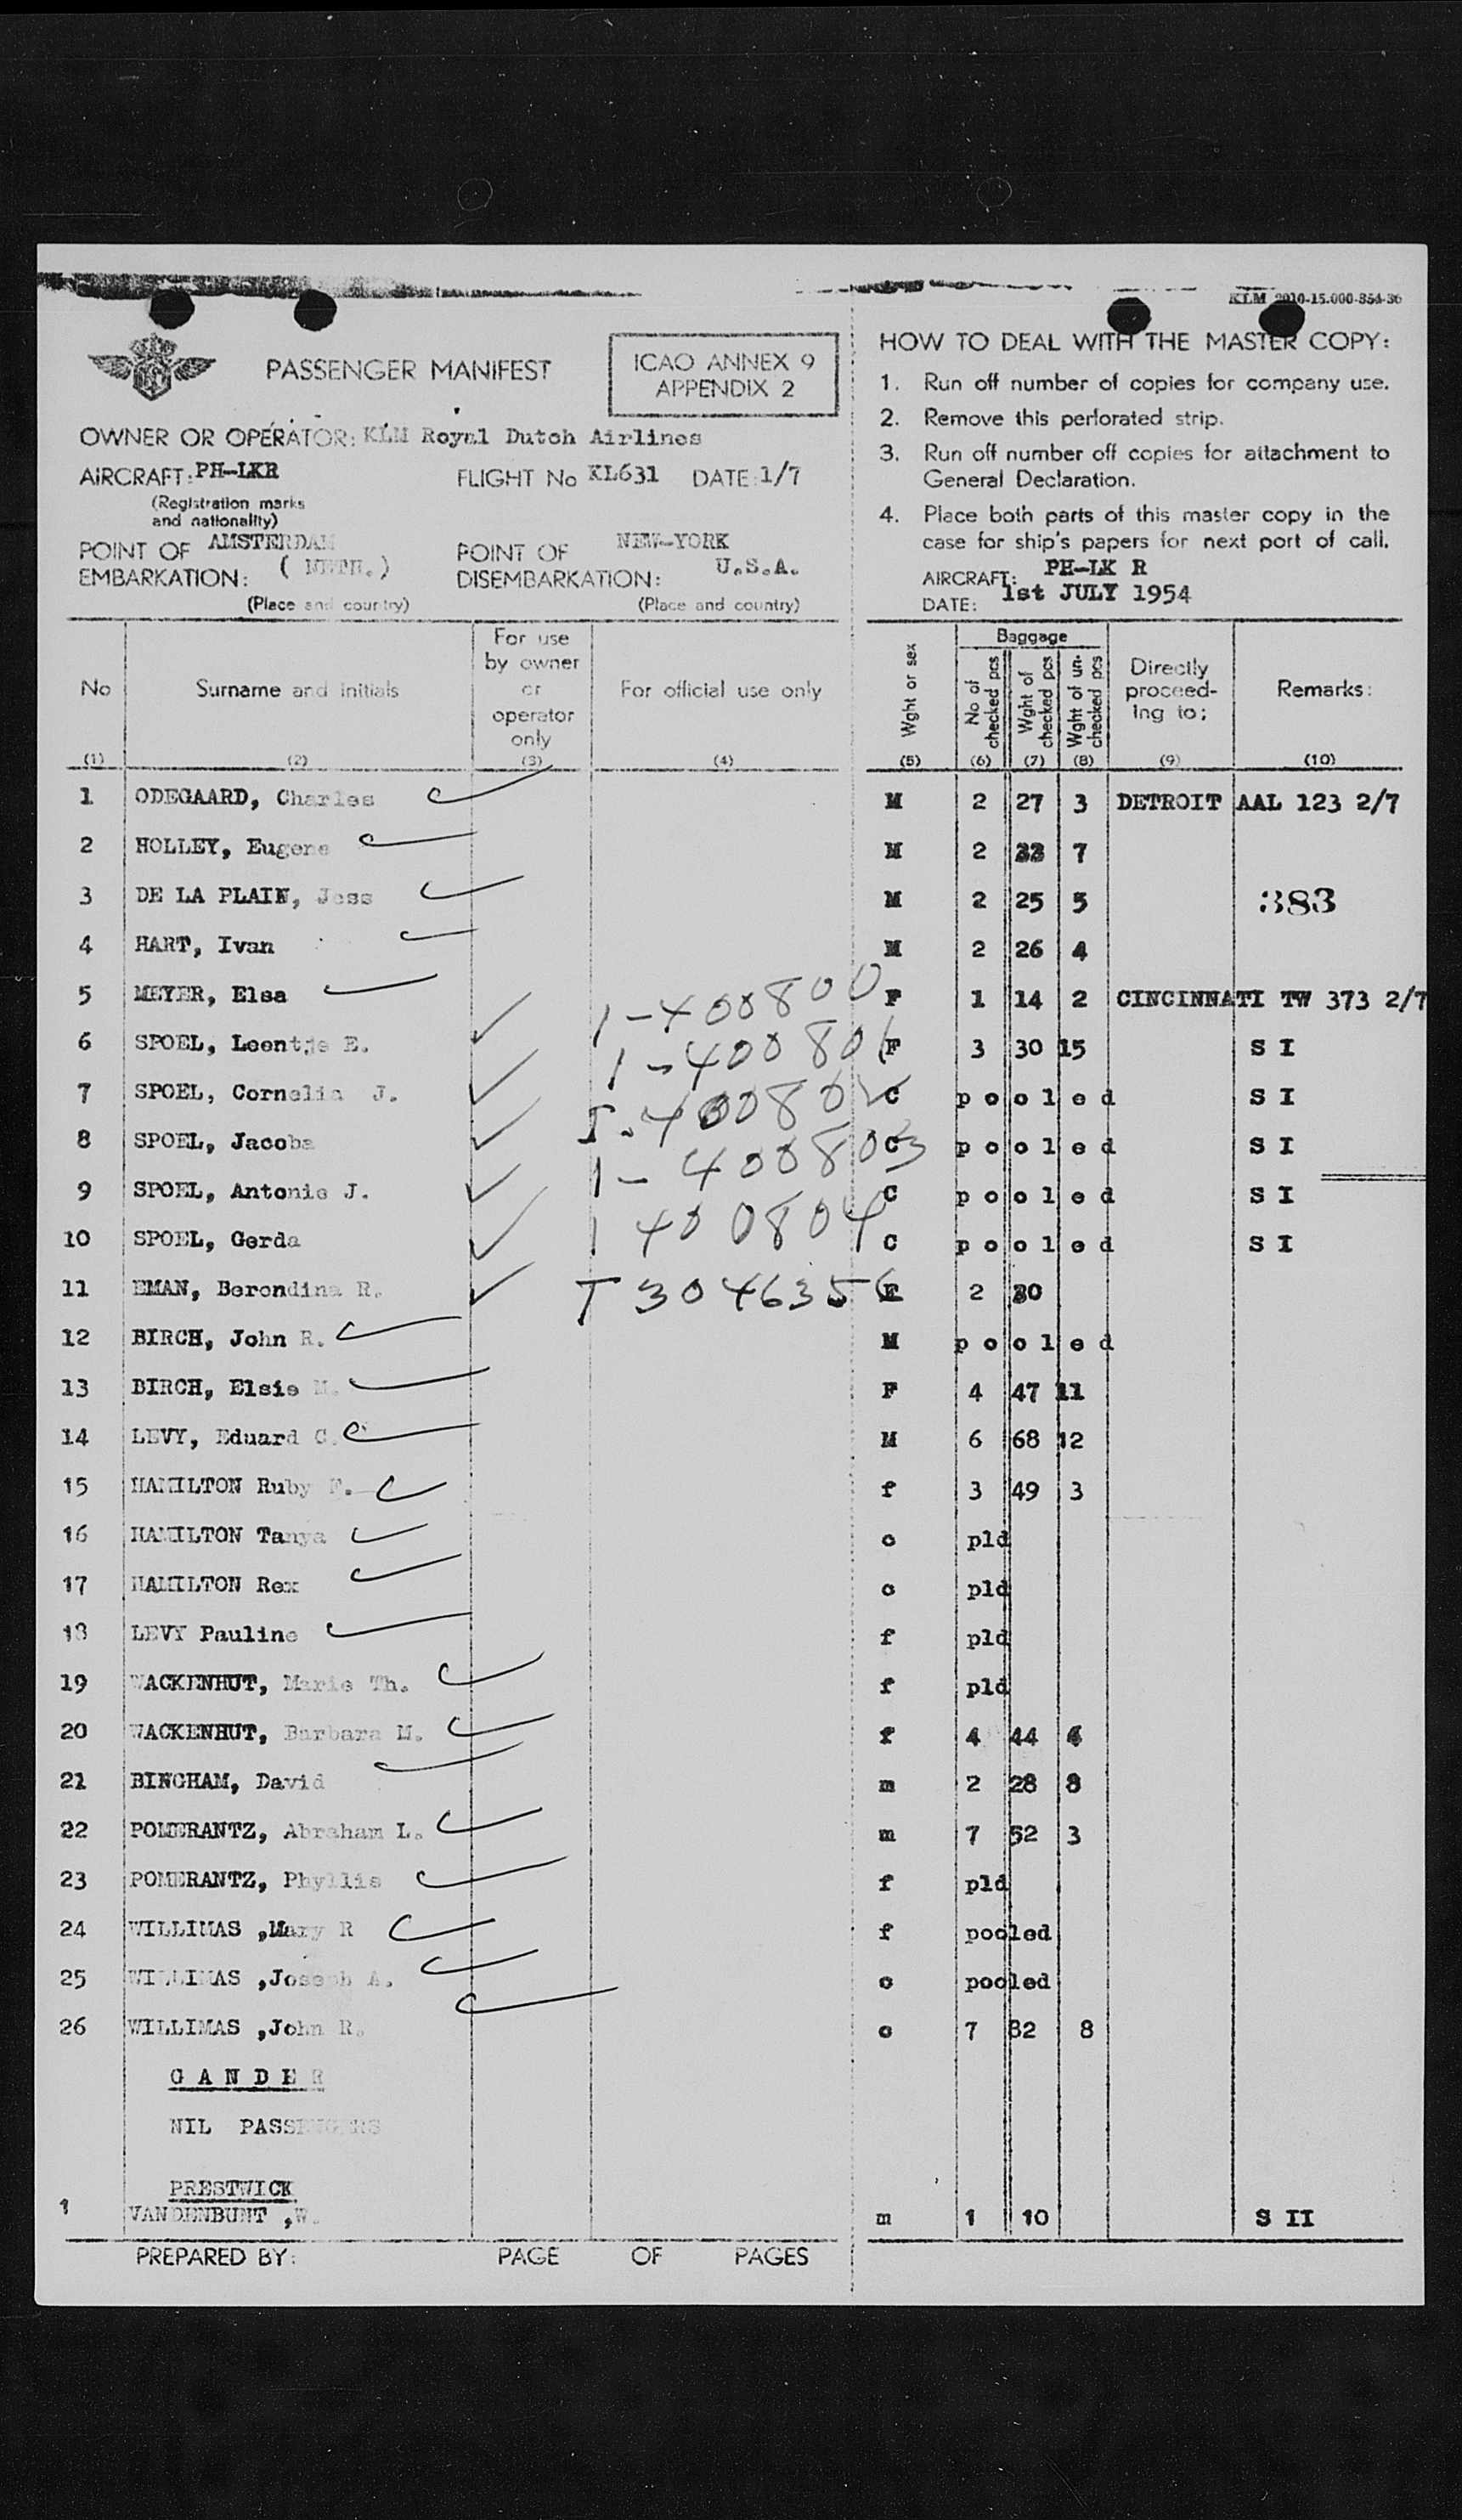 KLM 2010-15.000-854-36
PASSENGER MANIFEST
ICAO ANNEX 9
APPENDIX 2
OWNER OR OPERATOR: KLM Royal Dutch Airlines
AIRCRAFT: PH-LKR FLIGHT No KL631 DATE: 1/7
(Registration marks
and nationality)
POINT OF AMSTERDAM
EMBARKATION: ( NETH.)
(Place and country)
POINT OF NEW-YORK
DISEMBARKATION: U.S.A.
(Place and country)
HOW TO DEAL WITH THE MASTER COPY:
1. Run off number of copies for company use.
2. Remove this perforated strip.
3. Run off number off copies for attachment to
General Declaration.
4. Place both parts of this master copy in the
case for ship's papers for next port of call.
AIRCRAFT: PH-LK R
DATE: 1st JULY 1954
No
(1)
Surname and initials
(2)
For use
by owner
or
operator
only
(3)
For official use only
(4)
Wght or sex
(5)
Baggage
No of
checked pcs
(6)
Wght of
checked pcs
(7)
Wght of un-
checked pcs
(8)
Directly
proceed-
ing to:
(9)
Remarks:
(10)
1 ODEGAARD, Charles M 2 27 3 DETROIT AAL 123 2/7
2 HOLLEY, Eugene M 2 33 7
3 DE LA PLAIN, Jess M 2 25 5 383
4 HART, Ivan M 2 26 4
5 MEYER, Elsa F 1 14 2 CINCINNATI TW 373 2/7
6 SPOEL, Leentje E. 1-400800 F 3 30 15 S I
7 SPOEL, Cornelia J. 1-400801 C pooled S I
8 SPOEL, Jacoba 400802 C pooled S I
9 SPOEL, Antonie J. 1-400803 C pooled S I
10 SPOEL, Gerda 1 400804 C pooled S I
11 EMAN, Berendina R. T 3046356 F 2 30
12 BIRCH, John R. M pooled
13 BIRCH, Elsie M. F 4 47 11
14 LEVY, Eduard C. M 6 68 12
15 HAMILTON Ruby F. f 3 49 3
16 HAMILTON Tanya c pld
17 HAMILTON Rex c pld
18 LEVY Pauline f pld
19 WACKENHUT, Marie Th. f pld
20 WACKENHUT, Barbara M. f 4 44
21 BINGHAM, David m 2 28 8
22 POMERANTZ, Abraham L. m 7 52 3
23 POMERANTZ, Phyllis f pld
24 WILLIMAS ,Mary R f pooled
25 WILLIMAS ,Joseph A. c pooled
26 WILLIMAS ,John R. c 7 82 8
GANDER
NIL PASSENGERS
PRESTWICK
1 VANDENBUNT ,W. m 1 10 S II
PREPARED BY: PAGE OF PAGES